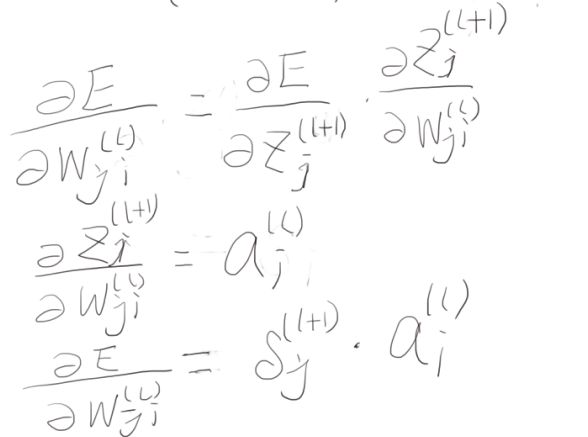 ∂E/∂W_{ji}^{(l)} = ∂E/∂Z_j^{(l+1)} · ∂Z_j^{(l+1)}/∂W_{ji}^{(l)}
∂Z_j^{(l+1)}/∂W_{ji}^{(l)} = a_i^{(l)}
∂E/∂W_{ji}^{(l)} = δ_j^{(l+1)} · a_i^{(l)}